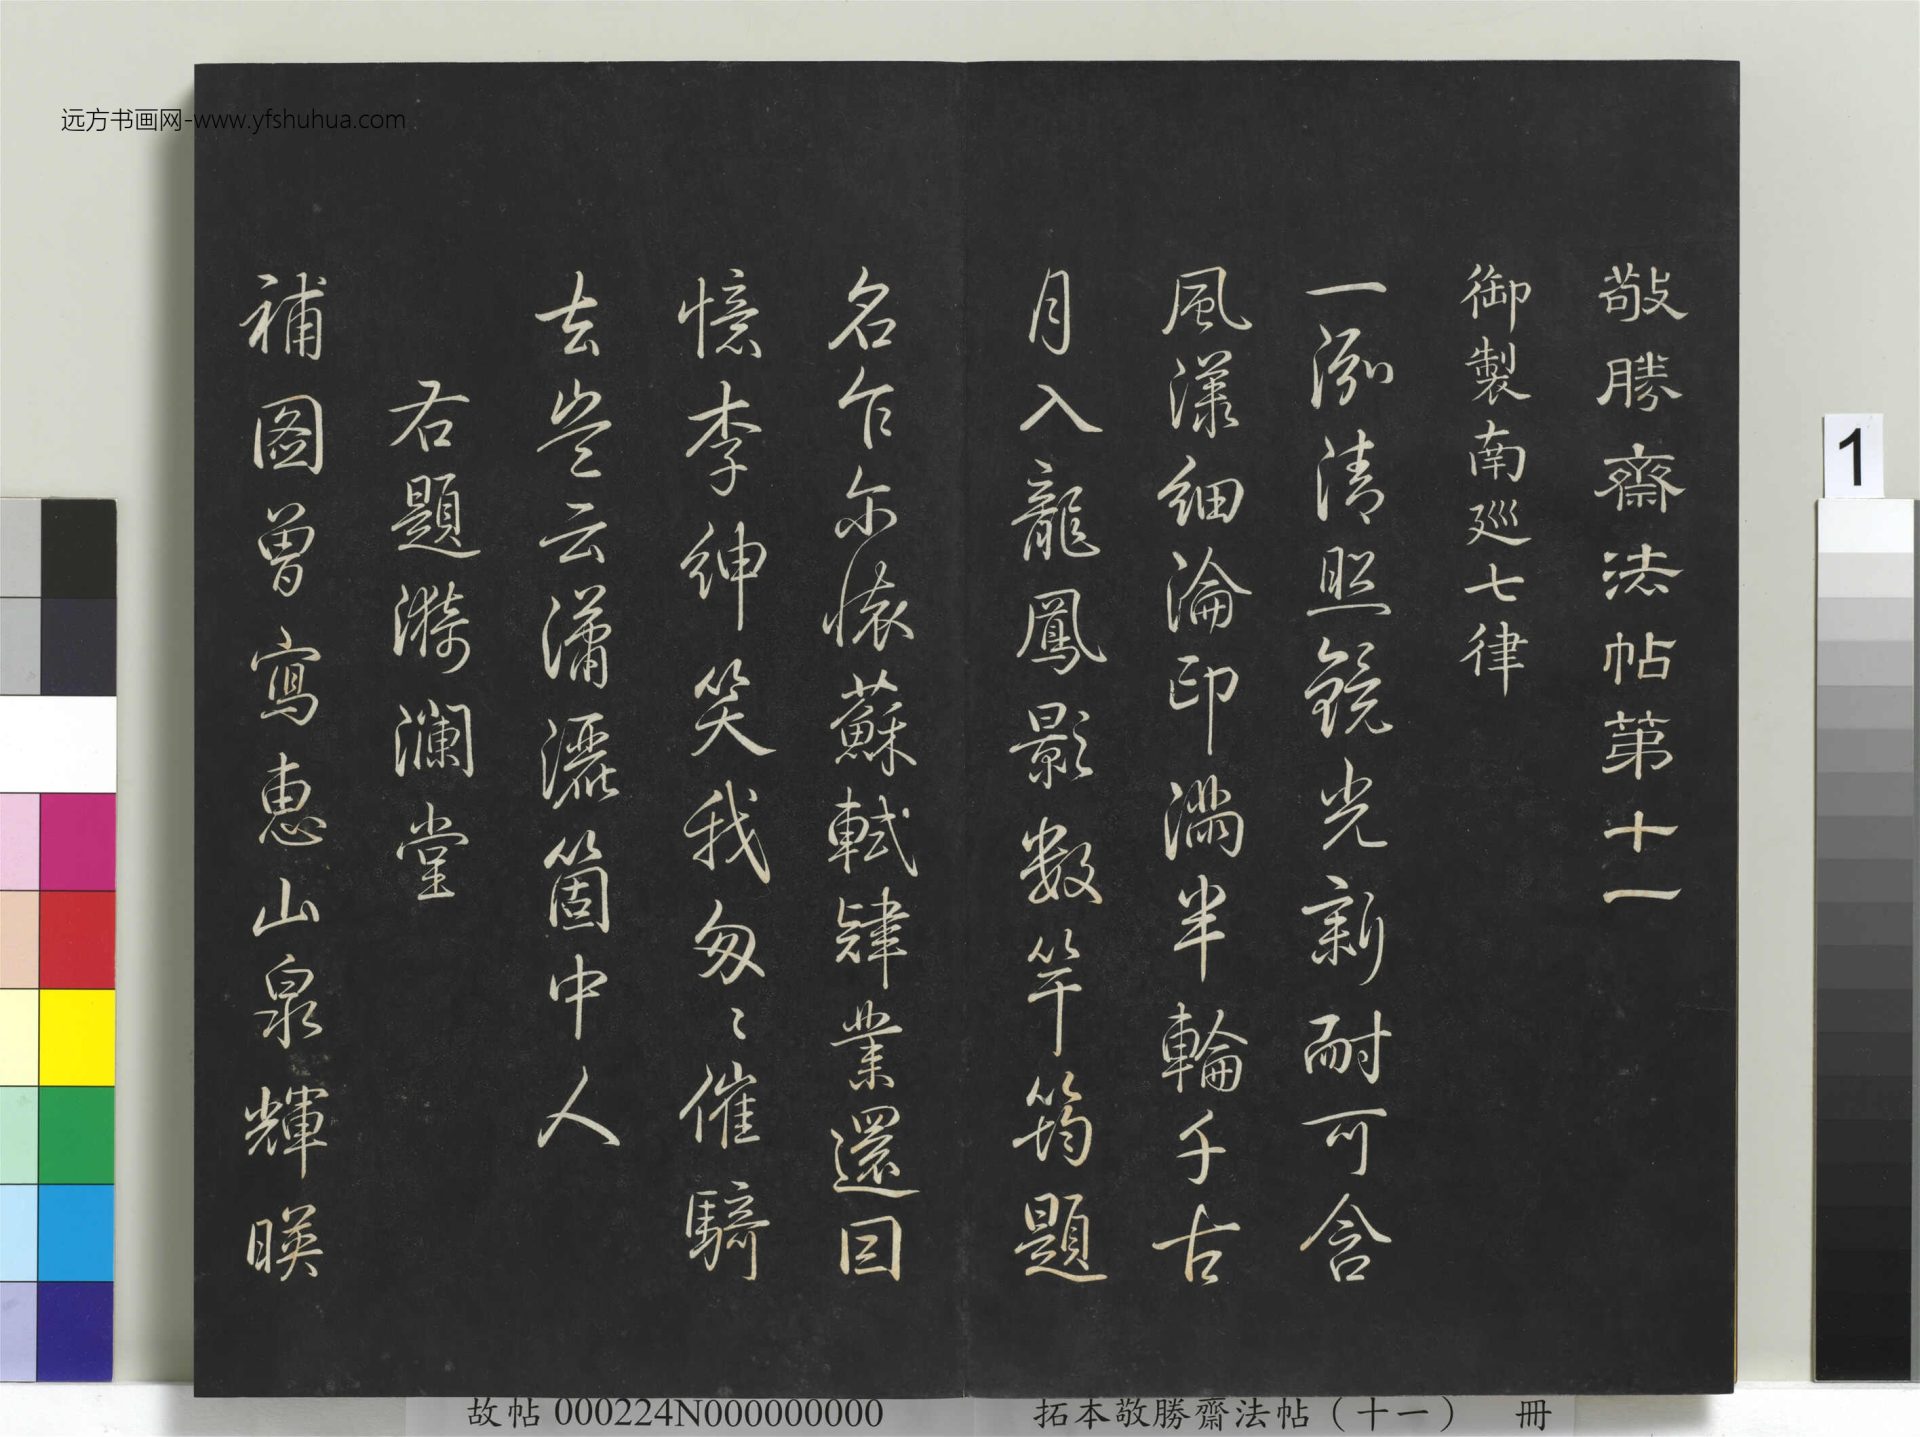 远方书画网-www.yfshuhua.com
敬勝齋法帖第十一
御製南廵七律
一泓清照鏡光新耐可含
風漾細淪印滿半輪千古
月入龍鳳影数竿筠題
名乍尔懷蘇軾肄業還因
憶李紳笑我匆〻催騎
去豈云瀟灑箇中人
右題漪瀾堂
補圖曾寫惠山泉輝暎
1
故帖 000224N000000000
拓本敬勝齋法帖（十一） 冊